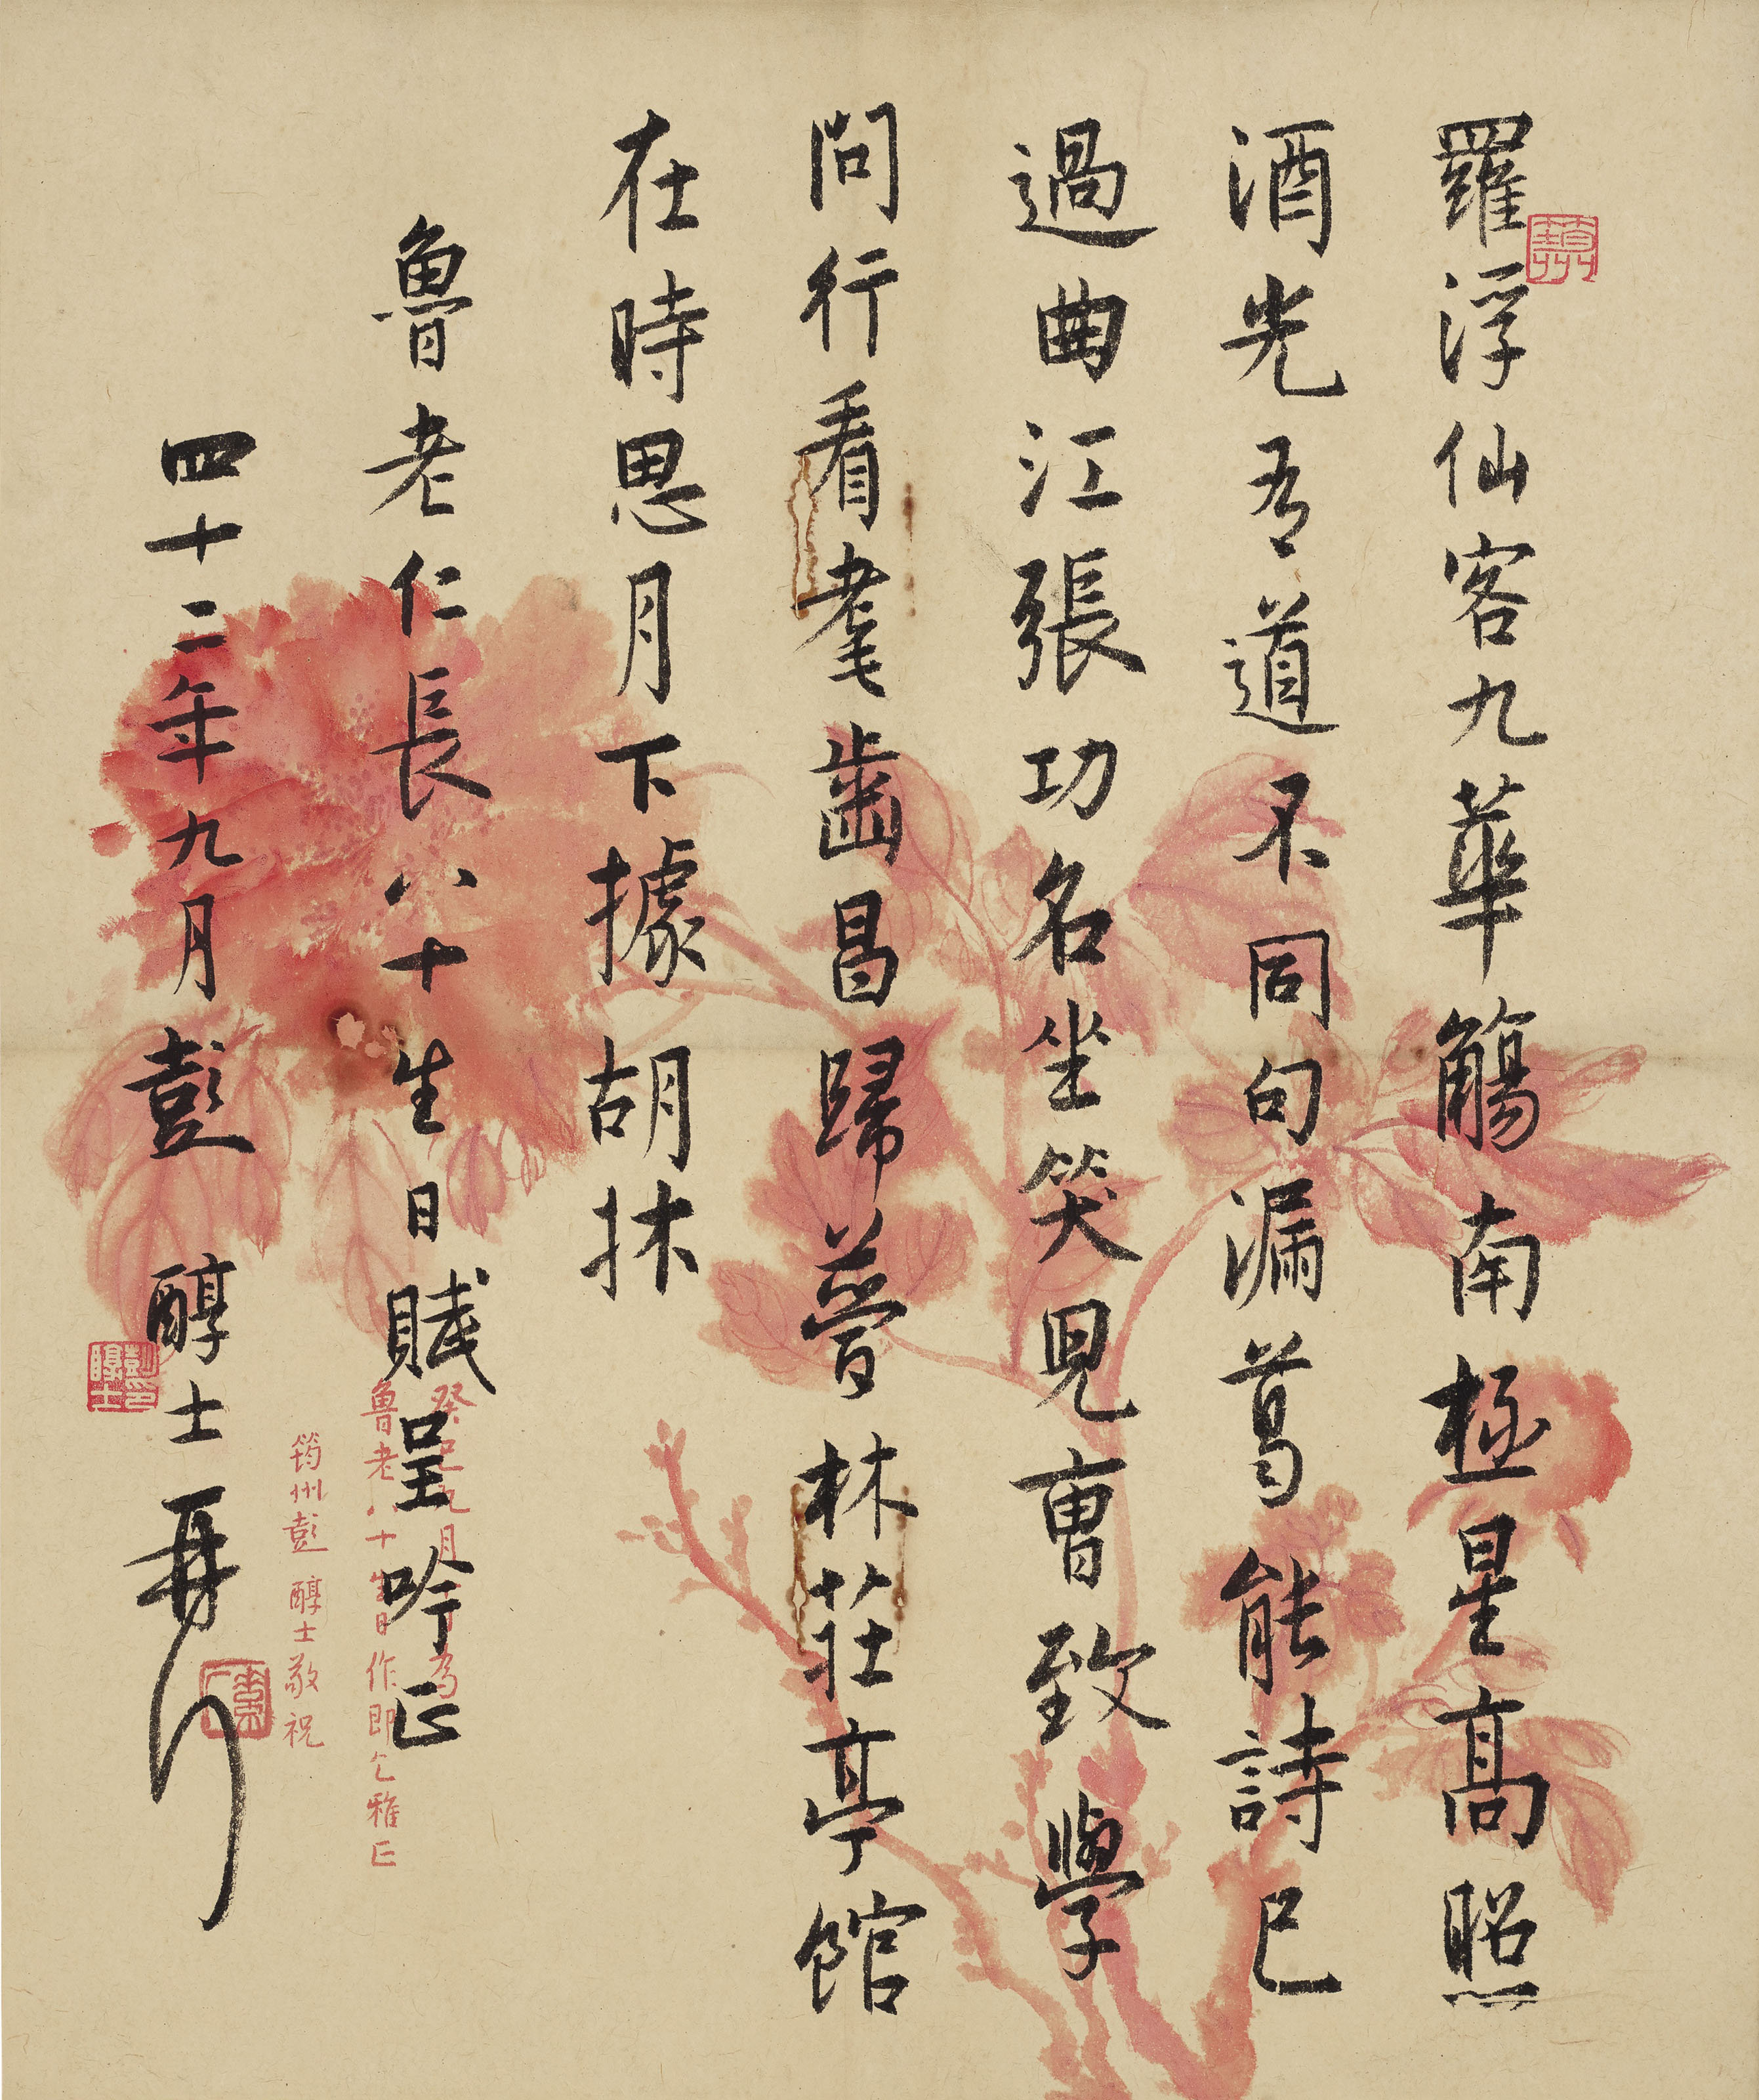 羅浮仙客九華觴南極星高照
酒光吾道不同句漏葛能詩已
過曲江張功名坐笑見曹致學
問行看耄齒昌歸夢林莊亭館
在時思月下據胡牀
魯老仁長八十生日賦呈吟正
四十二年九月彭醇士再拜
癸巳九月為
魯老八十生日作即乞雅正
筠州彭醇士敬祝
彭印醇士